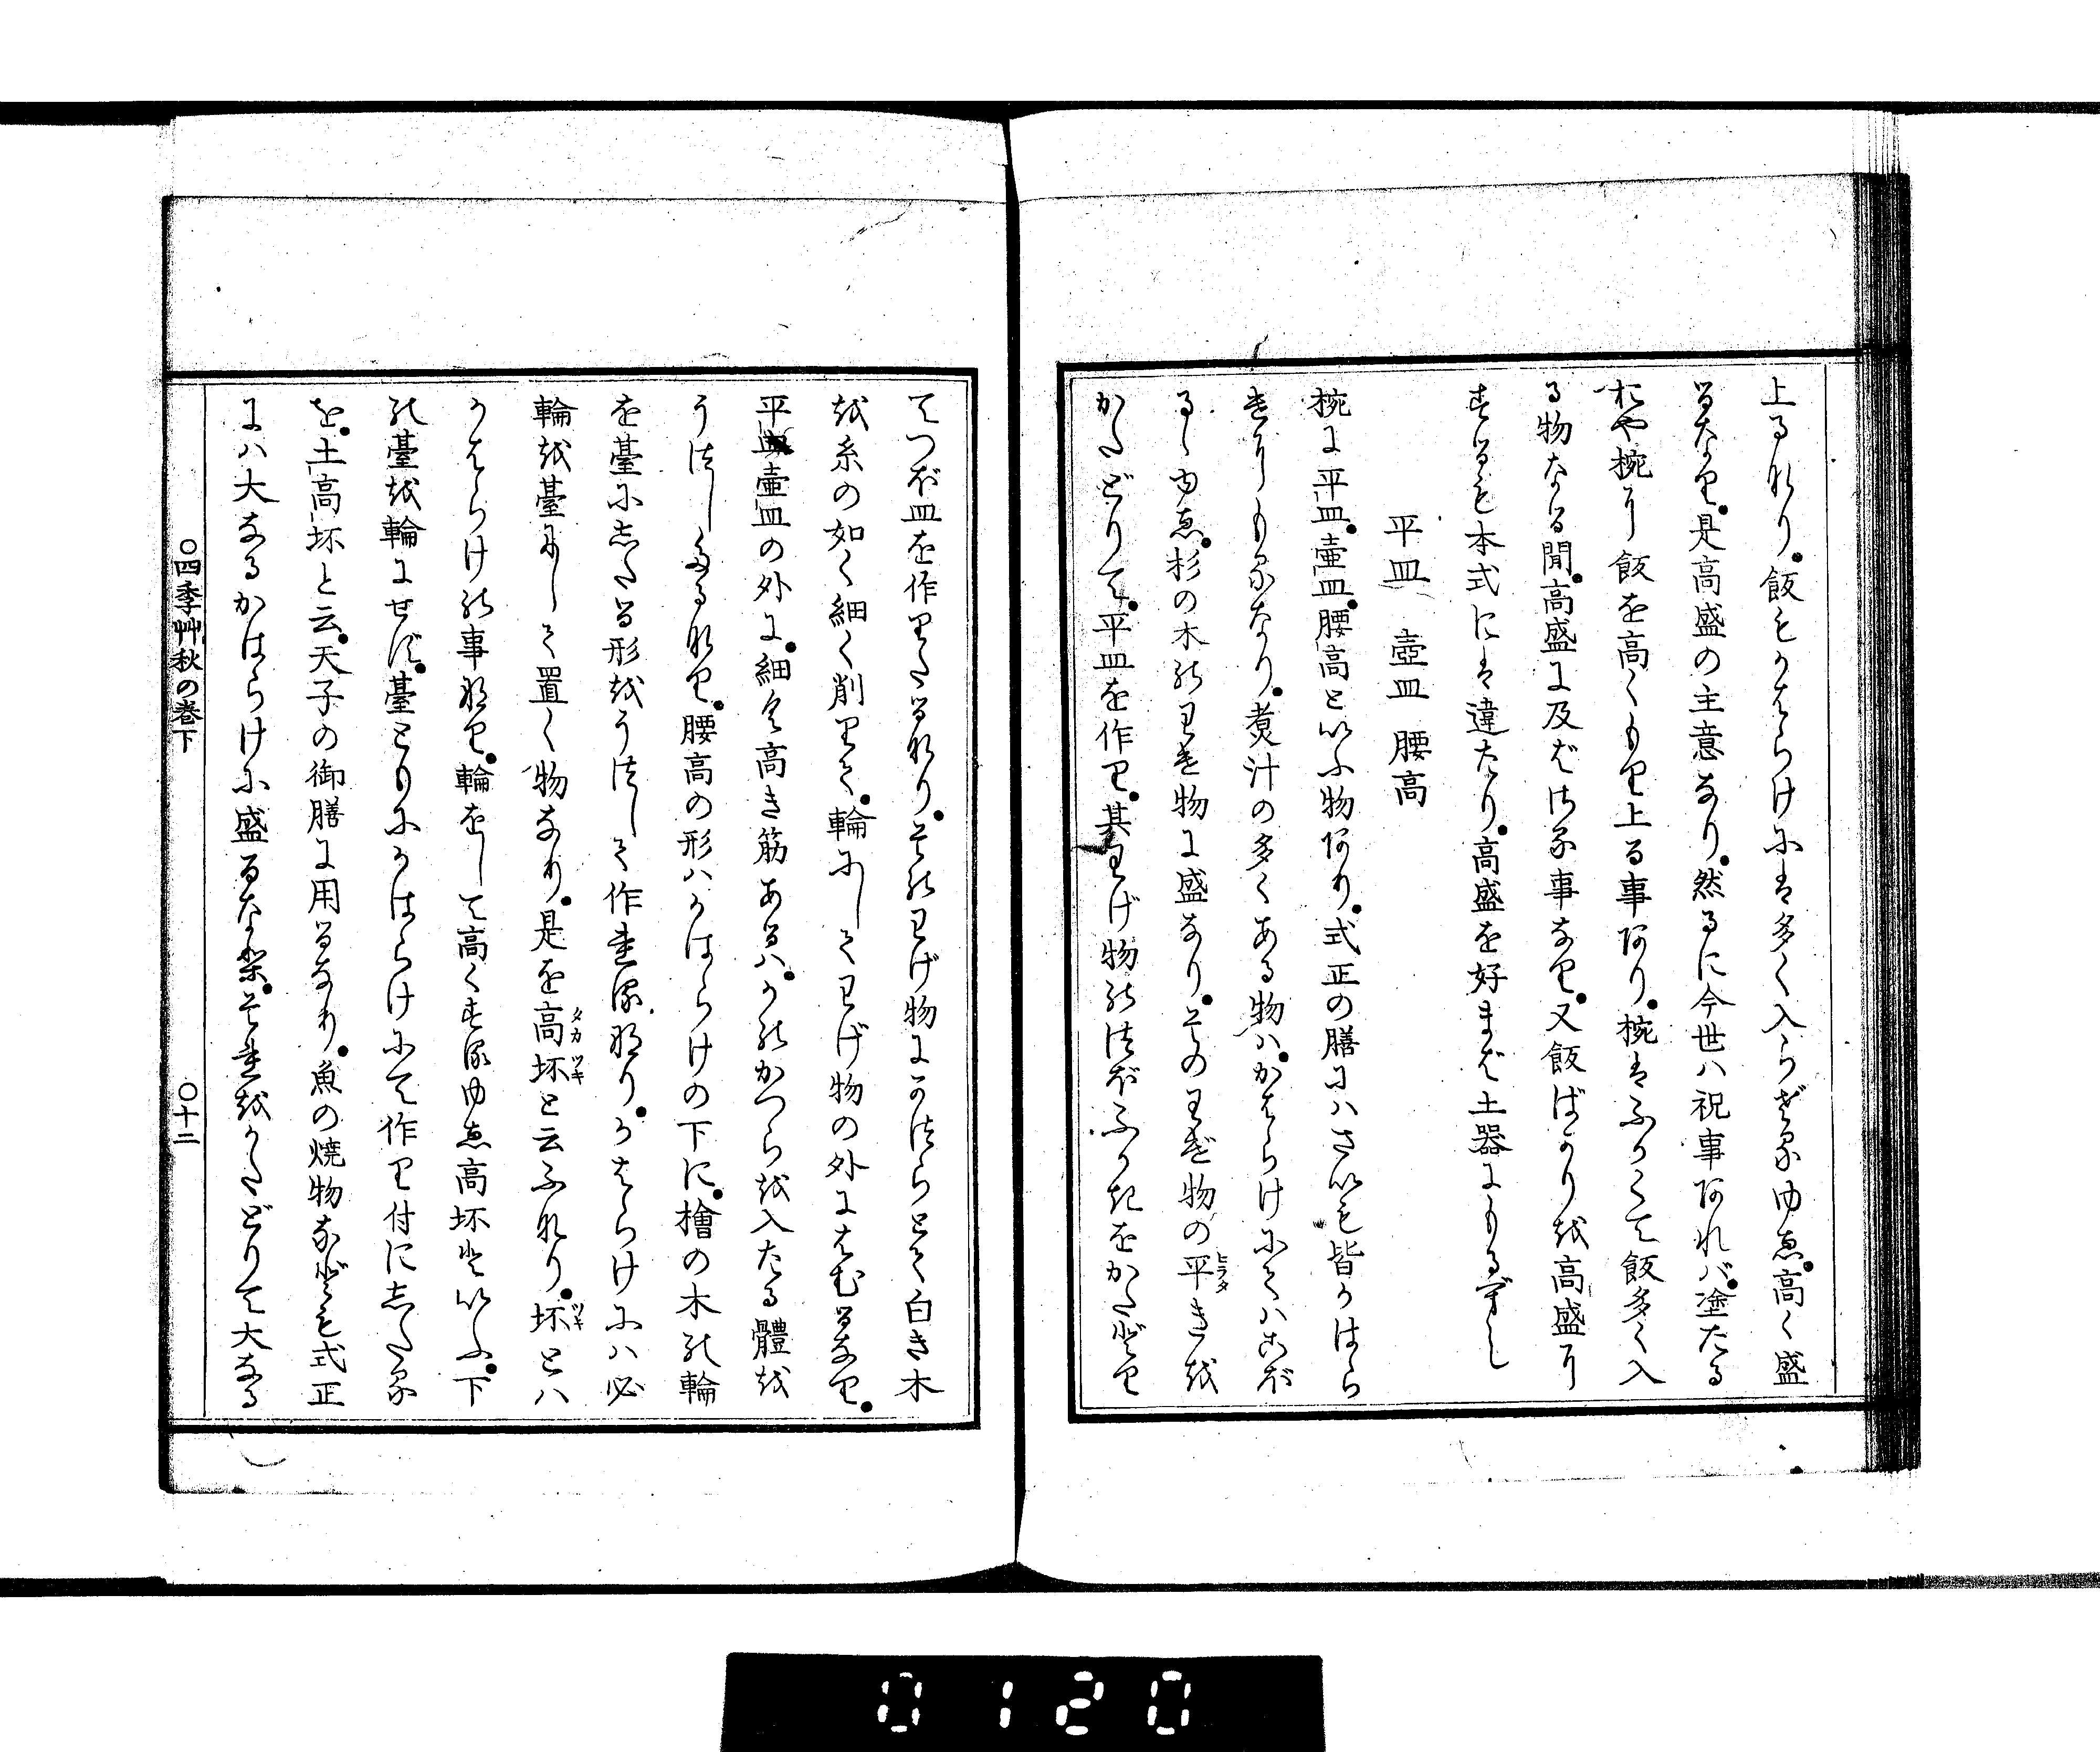 上るなり。飯もかはらけには多く入らざるゆゑ。高く盛
るなり。是高盛の主意なり。然るに今世ハ祝事あれバ。塗たる
おや椀に飯を高くもり上る事あり。椀はふかくて飯多く入
る物なる間。高盛に及ばざる事なり。又飯ばかりを高盛に
するも本式には違たり。高盛を好まば土器にもるべし
平皿　壺皿　腰高
椀に平皿。壺皿。腰高といふ物あり。式正の膳にハさいも皆かはら
けにもるなり。煮汁の多くある物ハ。かはらけにてハこぼ
るゝゆゑ。杉の木のわげ物に盛なり。そのわげ物の平きを
かたどりて。平皿を作り。其わげ物のつぼふかきをかたどり
てつぼ皿を作りたるなり。そのわげ物にかつらとて白き木
を糸の如く細く削りて。輪にしてわげ物の外にはむるなり。
平皿壺皿の外に。細く高き筋あるハ。かのかつらを入たる體を
うつしたるなり。腰高の形ハかはらけの下に。檜の木の輪
を臺にしたる形をうつして作れるなり。かはらけにハ必
輪を臺にして置く物なり。是を高坏と云ふなり。坏とハ
かはらけの事なり。輪をして高くするゆゑ高坏といふ。下
の臺を輪にせず。臺ともにかはらけにて作り付にしたる
を。土高坏と云。天子の御膳に用るなり。魚の焼物なども式正
にハ大なるかはらけに盛るなり。それをかたどりて大なる
〇四季艸秋の巻下　〇十二
タカツキ
ツキ
ヒラタ
0120